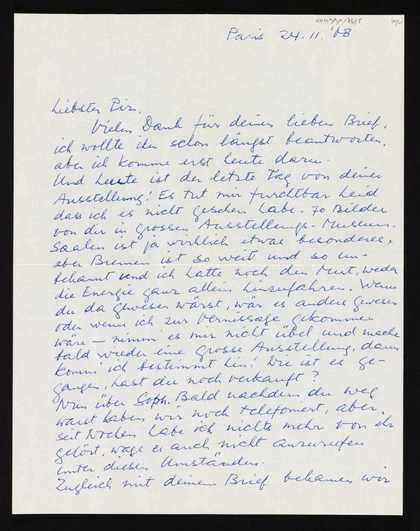 Paris 24.11.'68
Liebster Piz,
Vielen Dank für deinen lieben Brief,
ich wollte ihn schon längst beantworten,
aber ich komme erst heute dazu.
Und heute ist der letzte Tag von deiner
Ausstellung! Es tut mir furchtbar leid
dass ich es nicht gesehen habe. 70 Bilder
von dir in grossen Ausstellungs-Museum-
Saalen ist ja wirklich etwas besonderes,
aber Bremen ist so weit und so un-
bekannt und ich hatte noch den Mut, weder
die Energie ganz allein hinzufahren. Wenn
du da gewesen wärst, wär es anders gewesen
oder wenn ich zur Vernissage gekommen
wäre – nimm es mir nicht übel und mache
bald wieder eine grosse Ausstellung, dann
komm' ich bestimmt hin! Wie ist es ge-
gangen, hast du noch verkauft?
Nun über Soph. Bald nachdem du weg
warst haben wir noch telefoniert, aber
seit Wochen habe ich nichts mehr von ihr
gehört, wage es auch nicht anzurufen
unter diesen Umständen.
Zugleich mit deinem Brief bekamen wir